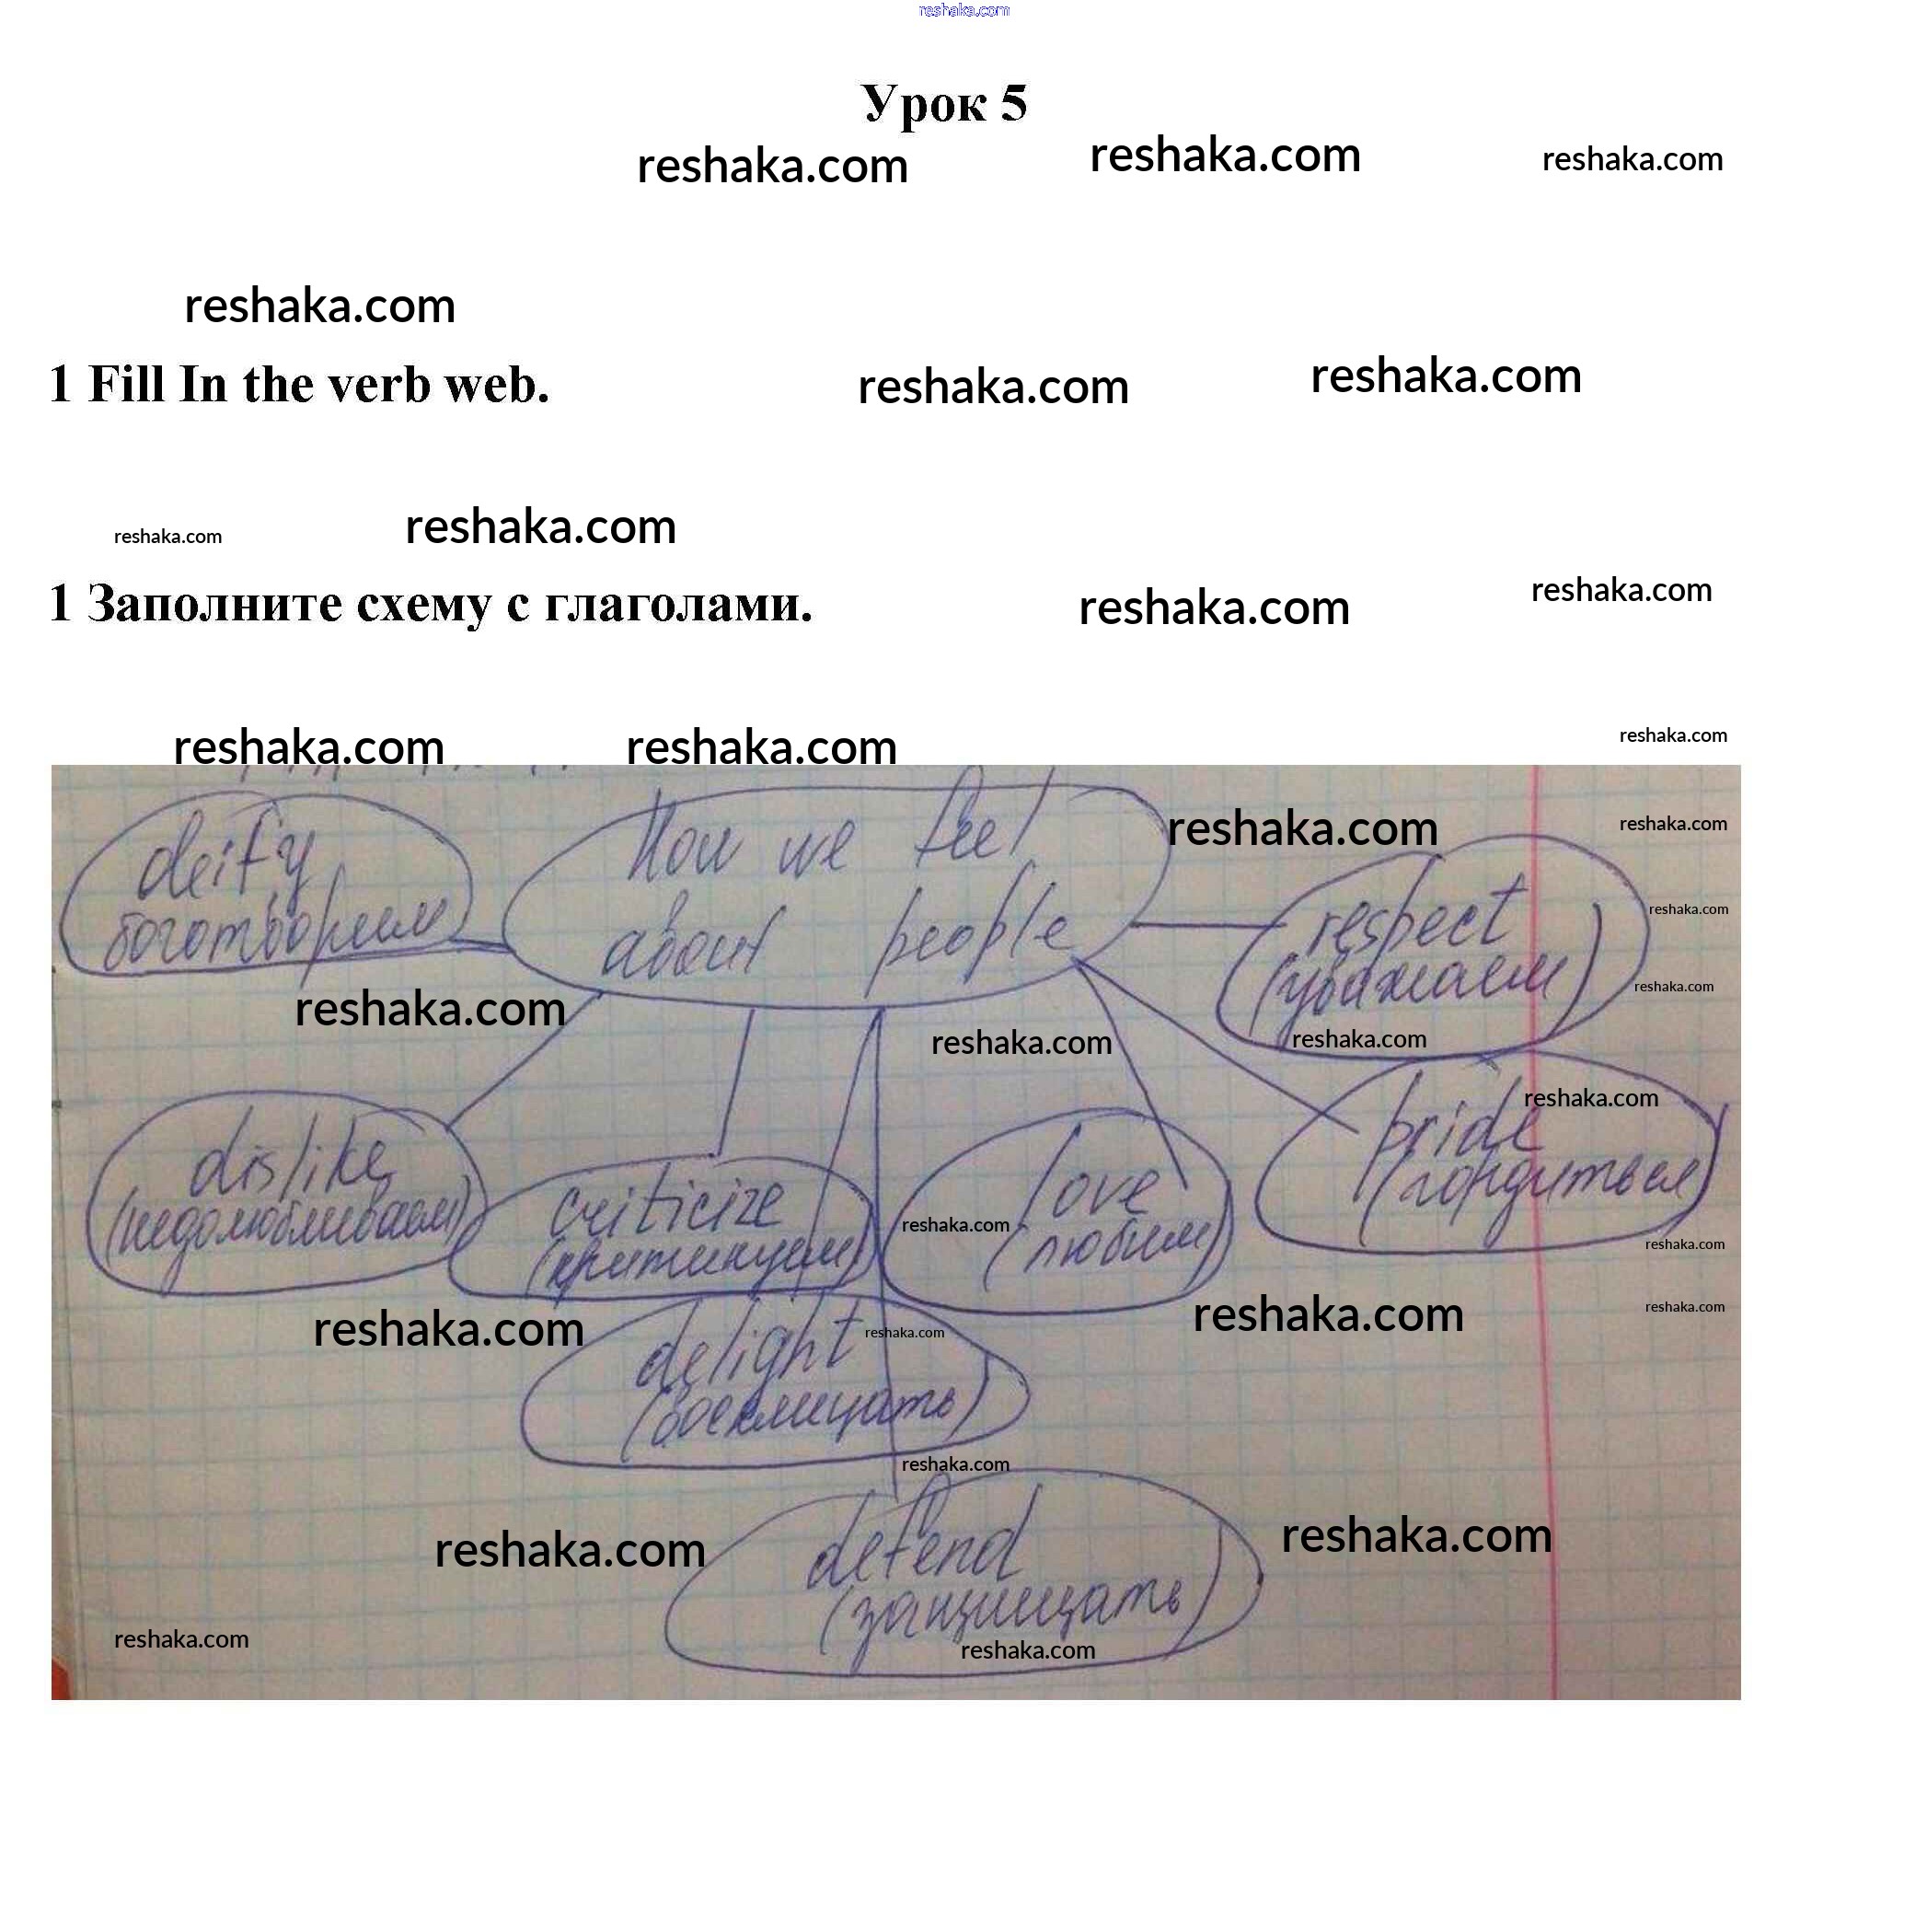 reshaka.com
Урок 5
reshaka.com reshaka.com reshaka.com
reshaka.com
1 Fill In the verb web.
reshaka.com reshaka.com
reshaka.com reshaka.com
1 Заполните схему с глаголами.
reshaka.com reshaka.com
reshaka.com reshaka.com reshaka.com
How we feel
about people
reshaka.com reshaka.com
deify
боготворим
respect
(уважаем)
reshaka.com
reshaka.com
reshaka.com
reshaka.com
reshaka.com
reshaka.com
pride
(гордиться)
dislike
(недолюбливаем)
criticize
(критикуем)
reshaka.com
love
(любим)
reshaka.com
reshaka.com
reshaka.com
reshaka.com
delight
(восхищать)
reshaka.com
reshaka.com
defend
(защищать)
reshaka.com
reshaka.com
reshaka.com
reshaka.com